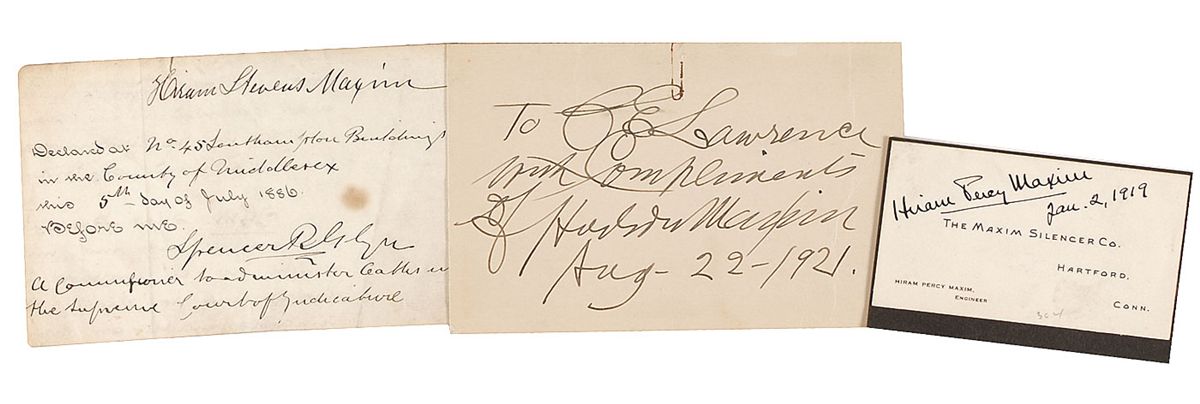 Hiram Stevens Maxim
Declared at No 45 Southampton Buildings
in the County of Middlesex
this 5th day of July 1886.
Before me.
Spencer R
A Commissioner to administer Oaths in
the Supreme Court of Judicature
To C E Lawrence
with Compliments
of Hudson Maxim
Aug - 22 - 1921.
Hiram Percy Maxim
Jan. 2, 1919
THE MAXIM SILENCER CO.
HARTFORD.
HIRAM PERCY MAXIM,
ENGINEER
CONN.
304